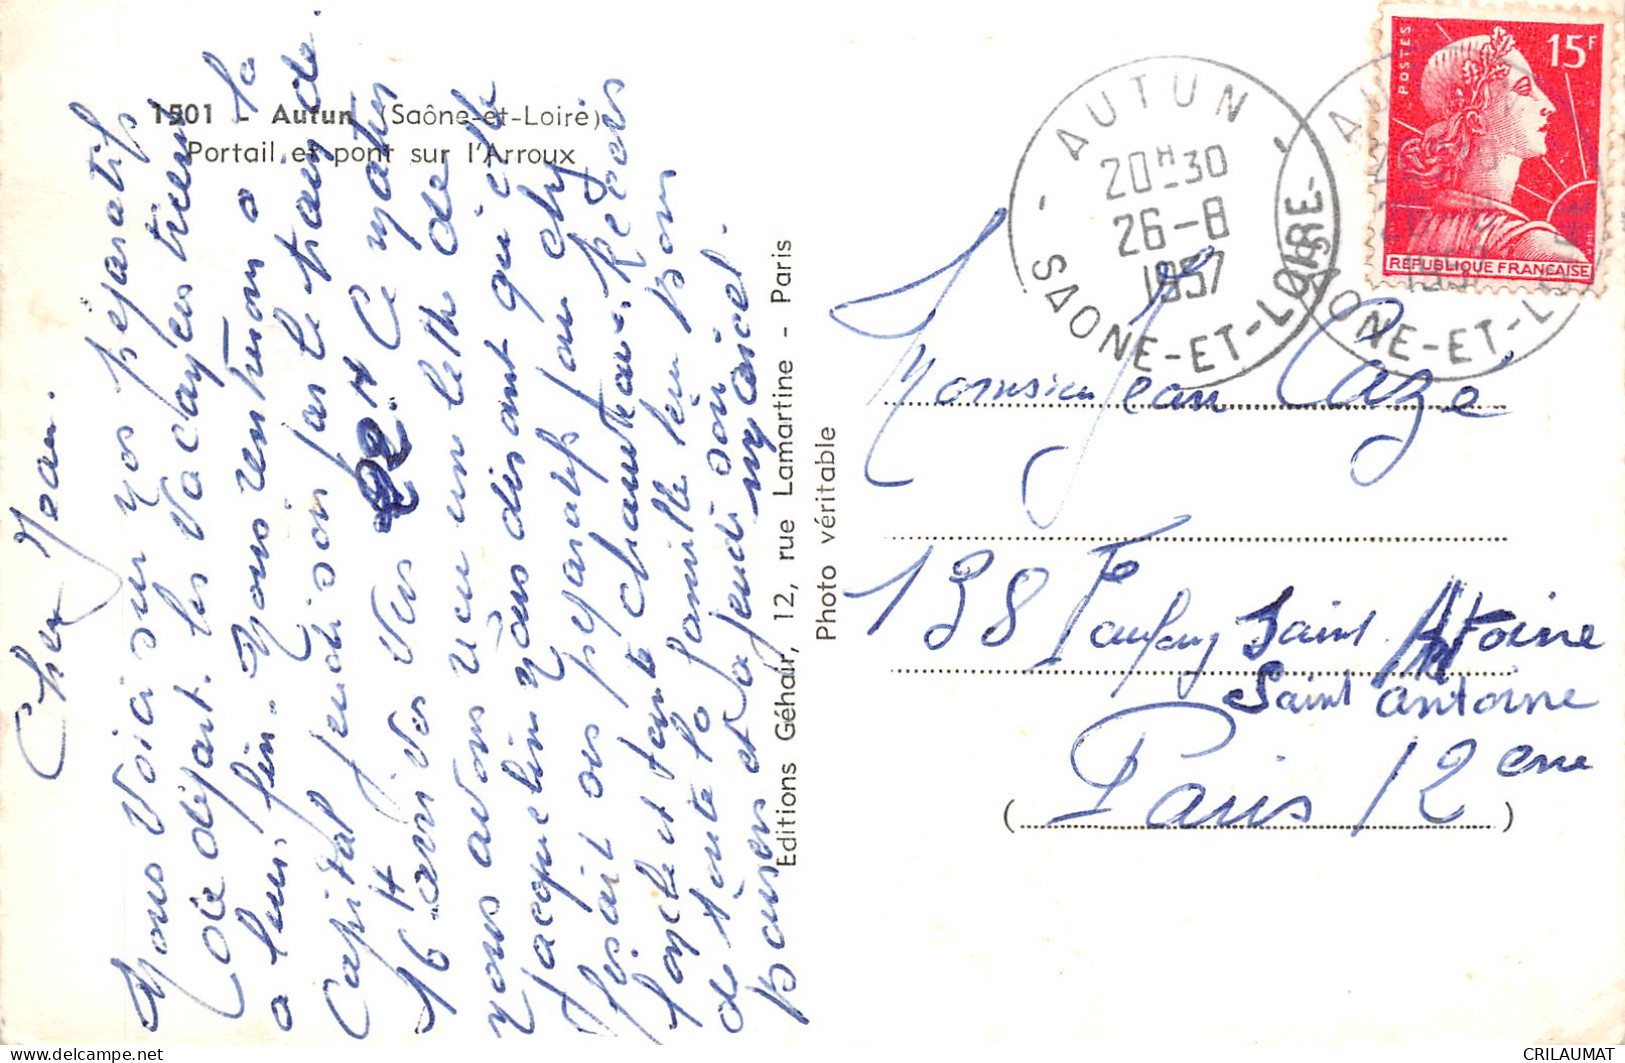 1501 - Autun (Saône-et-Loire)
Portail et pont sur l'Arroux
Cher Jean.
Nous voici sur nos préparatifs
de départ. les vacances tirent
a leur fin. Nous rentrerons a la
Capital jeudi soir par le train de
16 H Ce matin
nous avons recu un lettre de
Jacqueline nous disant qu'elle
faisait ces préparatifs pour
et toute
de toute la famille leur bon
Baisers et a jeudi soir Marcel
Editions Géhair, 12, rue Lamartine - Paris
Photo véritable
AUTUN
20H30
26-8
1957
SAONE-ET-LOIRE
POSTES
15F
REPUBLIQUE FRANCAISE
Monsieur Jean Caze
138 Faubourg Saint Antoine
Saint antoine
Paris 12 eme
CRILAUMAT